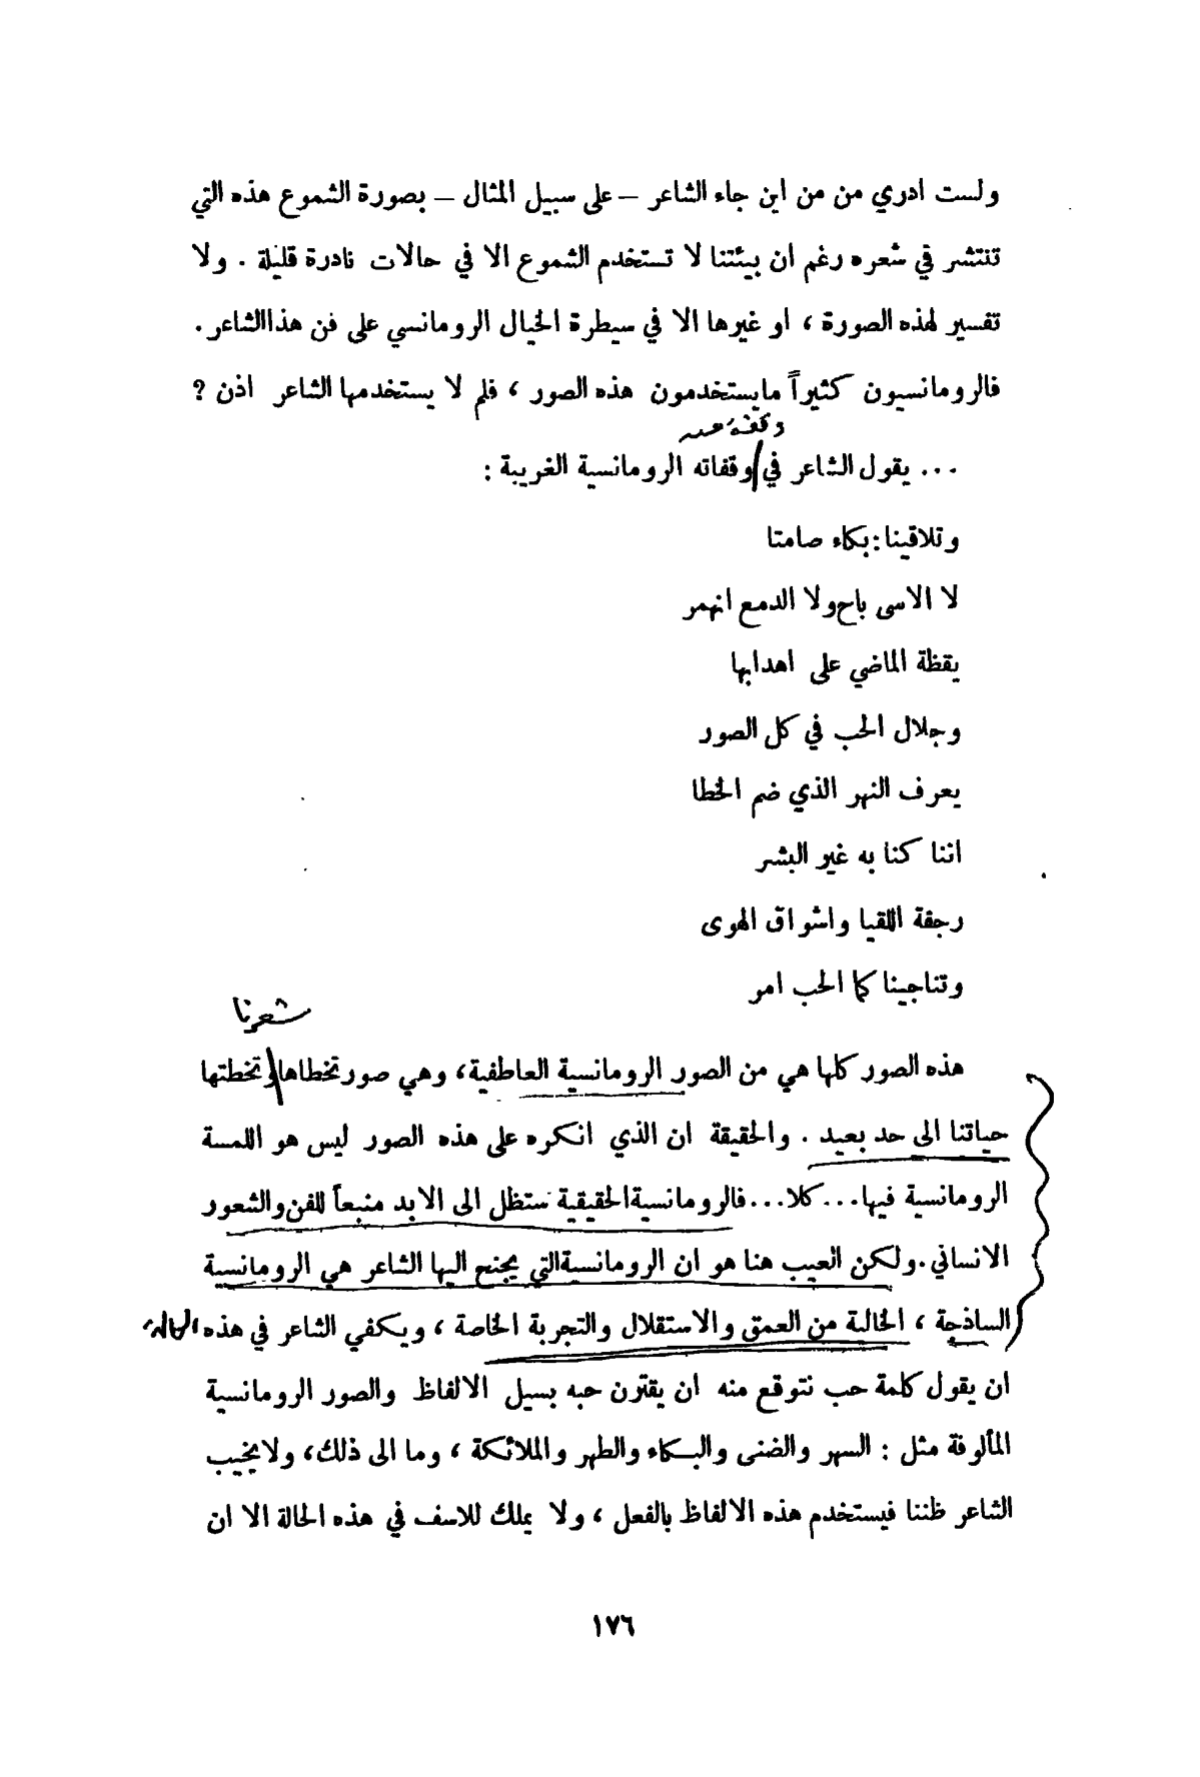 ولست ادري من من اين جاء الشاعر – على سبيل المثال – بصورة الشموع هذه التي
تنتشر في شعره رغم ان بيئتنا لا تستخدم الشموع الا في حالات نادرة قليلة . ولا
تفسير لهذه الصورة ، او غيرها الا في سيطرة الخيال الرومانسي على فن هذا الشاعر .
فالرومانسيون كثيراً مايستخدمون هذه الصور ، فلم لا يستخدمها الشاعر اذن ؟
... يقول الشاعر في وقفاته الرومانسية الغريبة :
وتلاقينا : بكاء صامتا
لا الاسى باح ولا الدمع انهمر
يقظة الماضي على اهدابها
وجلال الحب في كل الصور
يعرف النهر الذي ضم الخطا
اننا كنا به غير البشر
رجفة اللقيا واشواق الهوى
وتناجينا كما الحب امر
شعرنا
هذه الصور كلها هي من الصور الرومانسية العاطفية ، وهي صور تخطاها وتخطتها
حياتنا الى حد بعيد . والحقيقة ان الذي انكره على هذه الصور ليس هو اللمسة
الرومانسية فيها ... كلا ... فالرومانسية الحقيقية ستظل الى الابد منبعاً للفن والشعور
الانساني . ولكن العيب هنا هو ان الرومانسية التي يجنح اليها الشاعر هي الرومانسية
الساذجة ، الخالية من العمق والاستقلال والتجربة الخاصة ، ويكفي الشاعر في هذه الحالة
ان يقول كلمة حب نتوقع منه ان يقترن حبه بسيل الالفاظ والصور الرومانسية
المألوفة مثل : السهر والضنى والبكاء والطهر والملائكة ، وما الى ذلك ، ولا يخيب
الشاعر ظننا فيستخدم هذه الالفاظ بالفعل ، ولا يملك للاسف في هذه الحالة الا ان
١٧٦